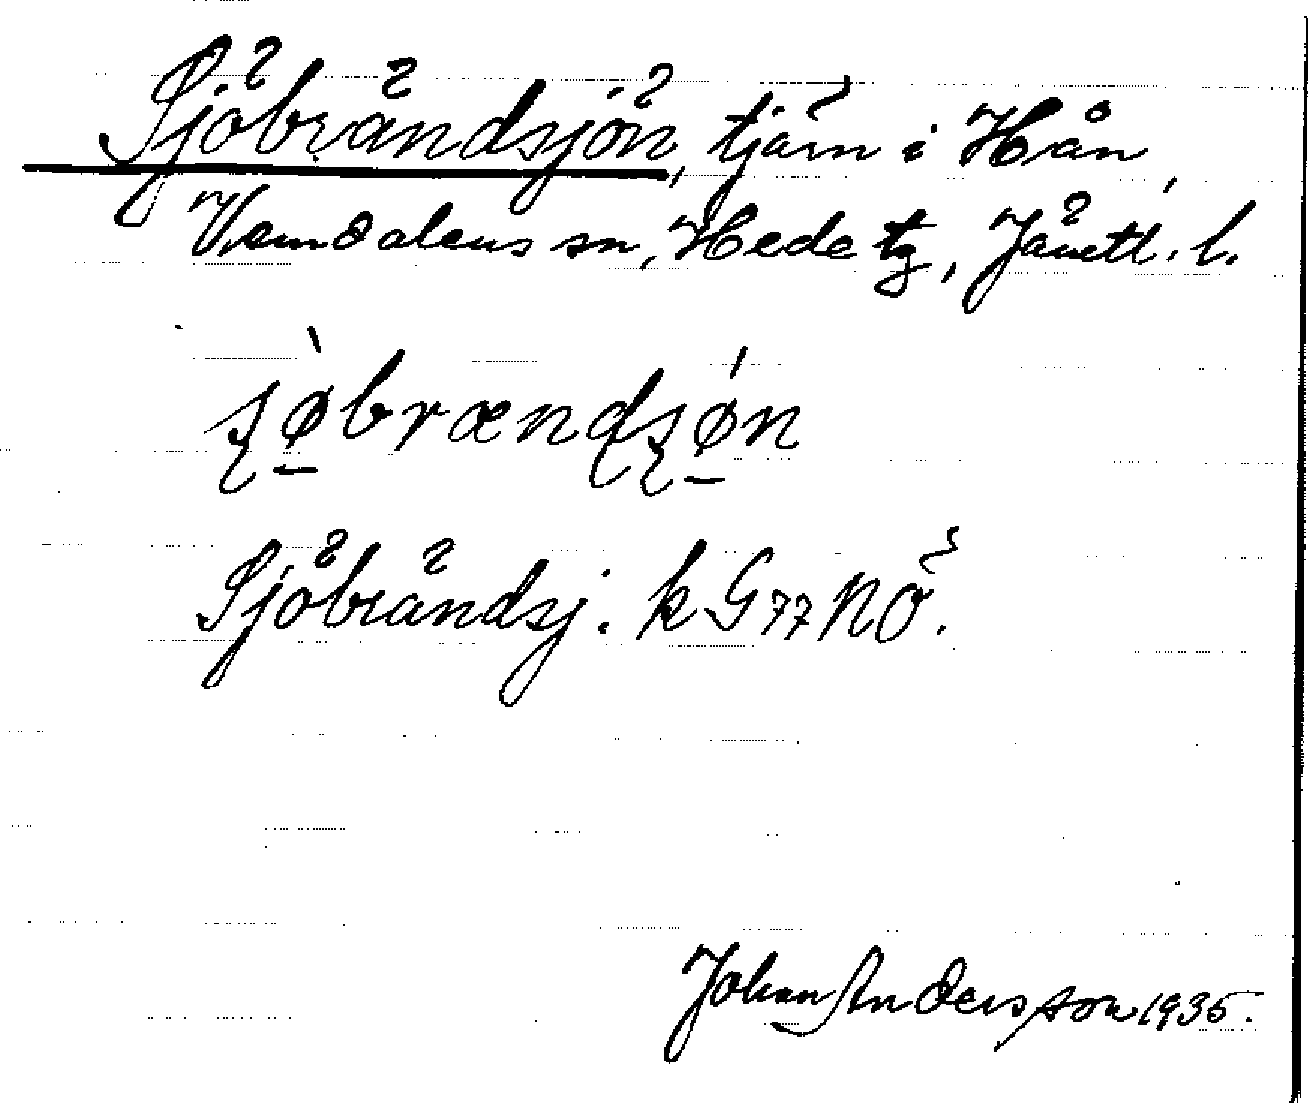 Sjöbrändsjön, tjärn i Hån,
Vemdalens sn, Hede tg, Jämtl. l.
Sjöbrändsj. k G 77 NÖ.
Johan Andersson 1935.